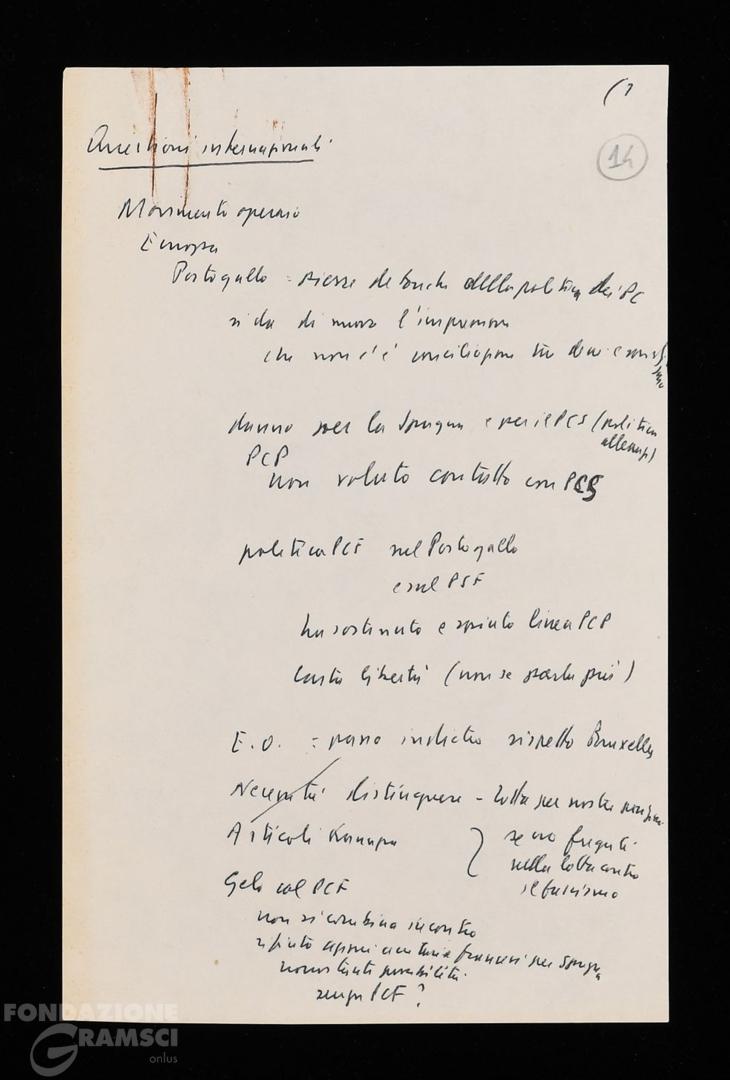 (1
14
Questioni internazionali
Movimento operaio
Europa
Portogallo = pierre de touche della politica dei PC
si da di nuovo l'impressione
che non c'è conciliazione tra dem. e
danno per la Spagna e per il PCS (politica
alleanze)
PCP
non voluto contatto con PCS
politica PCF sul Portogallo
e sul PSF
ha sostenuto e spinto linea PCP
carta libertà (non se parla più)
E.O. = passo indietro rispetto Bruxelles
Necessità distinguere - lotta per nostre posizioni
Articoli Kanapa
se no fregati
nella lotta contro
il fascismo
Gelo col PCF
non si combina incontro
rifiuto unitaria francesi per Spagna
nonostante possibilità
senza PCF?
FONDAZIONE
GRAMSCI
onlus